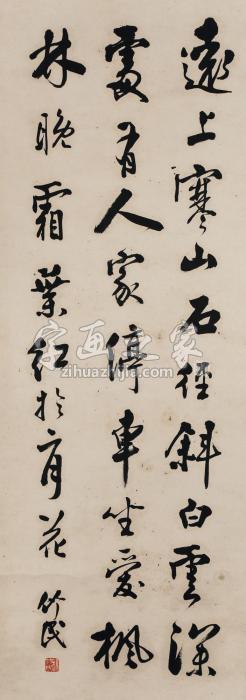 遠上寒山石徑斜白雲深
處有人家停車坐愛楓
林晚霜葉紅於二月花
竹民
字画之家
zihuazhijia.com